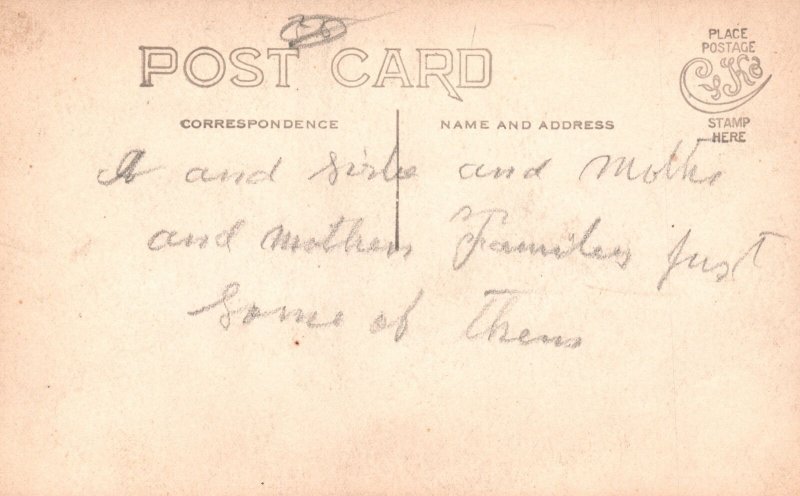 POST CARD
PLACE
POSTAGE
STAMP
HERE
CORRESPONDENCE
NAME AND ADDRESS
and and Mothe
and mothers Families Just
Some of Them